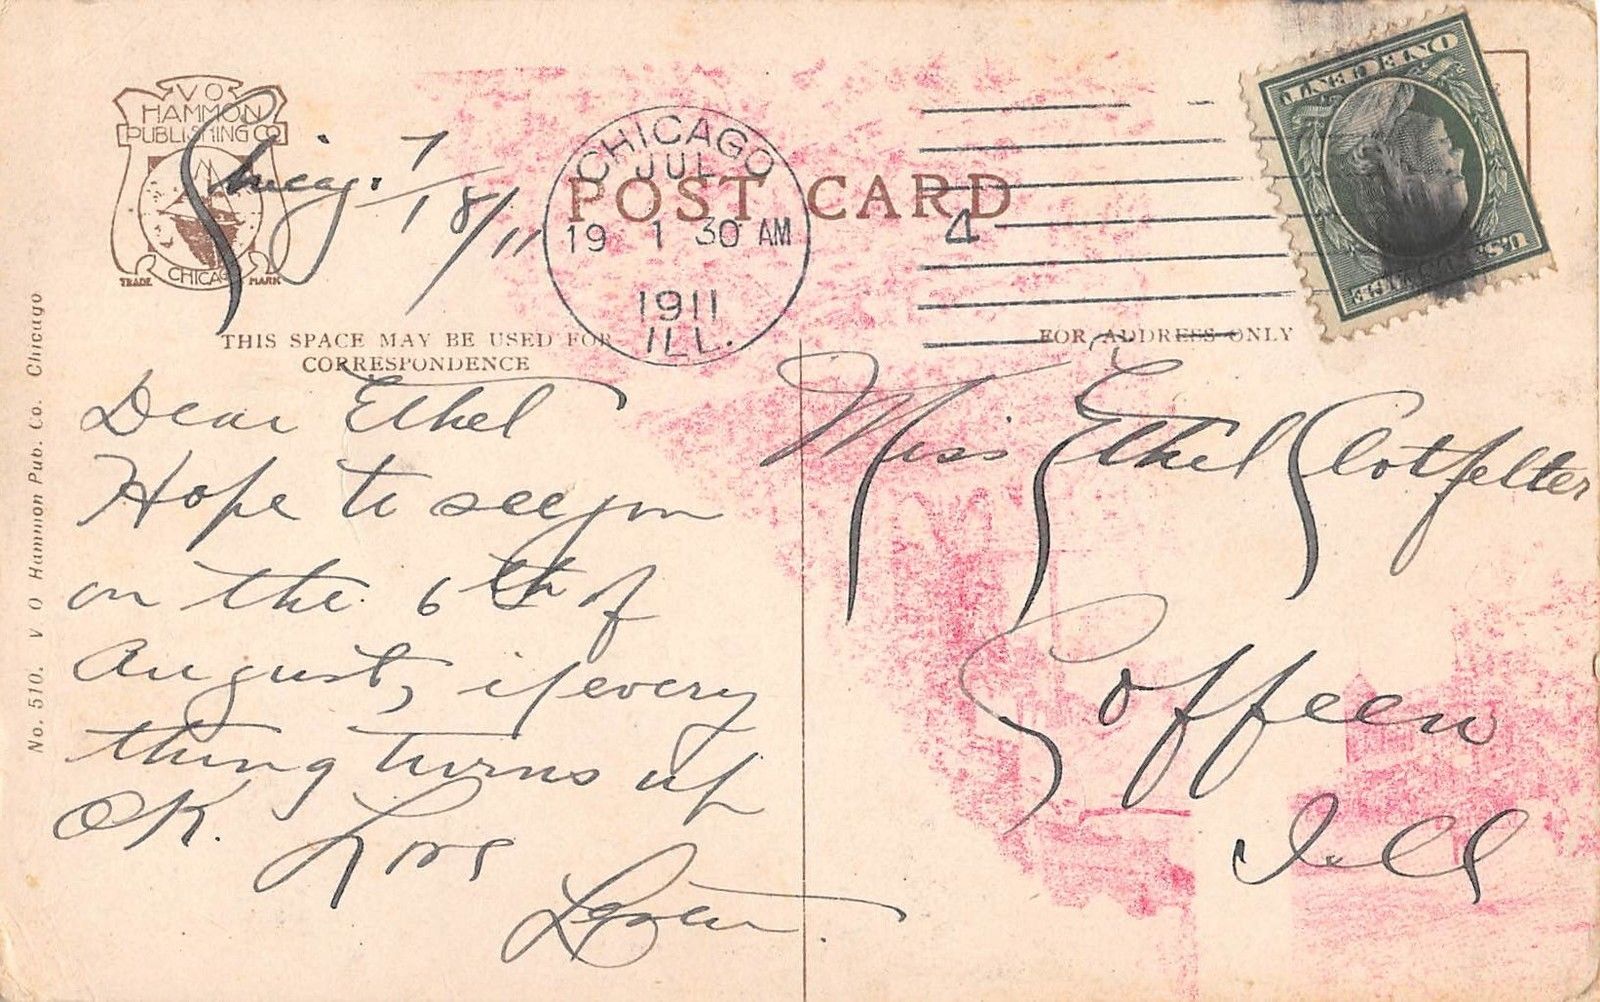 V O
HAMMON
PUBLISHING CO
CHICAGO
TRADE MARK
Chicag. 7/18/11
POST CARD
CHICAGO
JUL
19 1 30 AM
1911
ILL.
4
U.S. POSTAGE
ONE CENT
THIS SPACE MAY BE USED FOR
CORRESPONDENCE
FOR ADDRESS ONLY
No. 510. V O Hammon Pub. Co. Chicago
Dear Ethel
Hope to see you
on the 6th of
August, if every
thing turns up
OK. Love
Miss Ethel Clotfelter
Coffeen
Ill